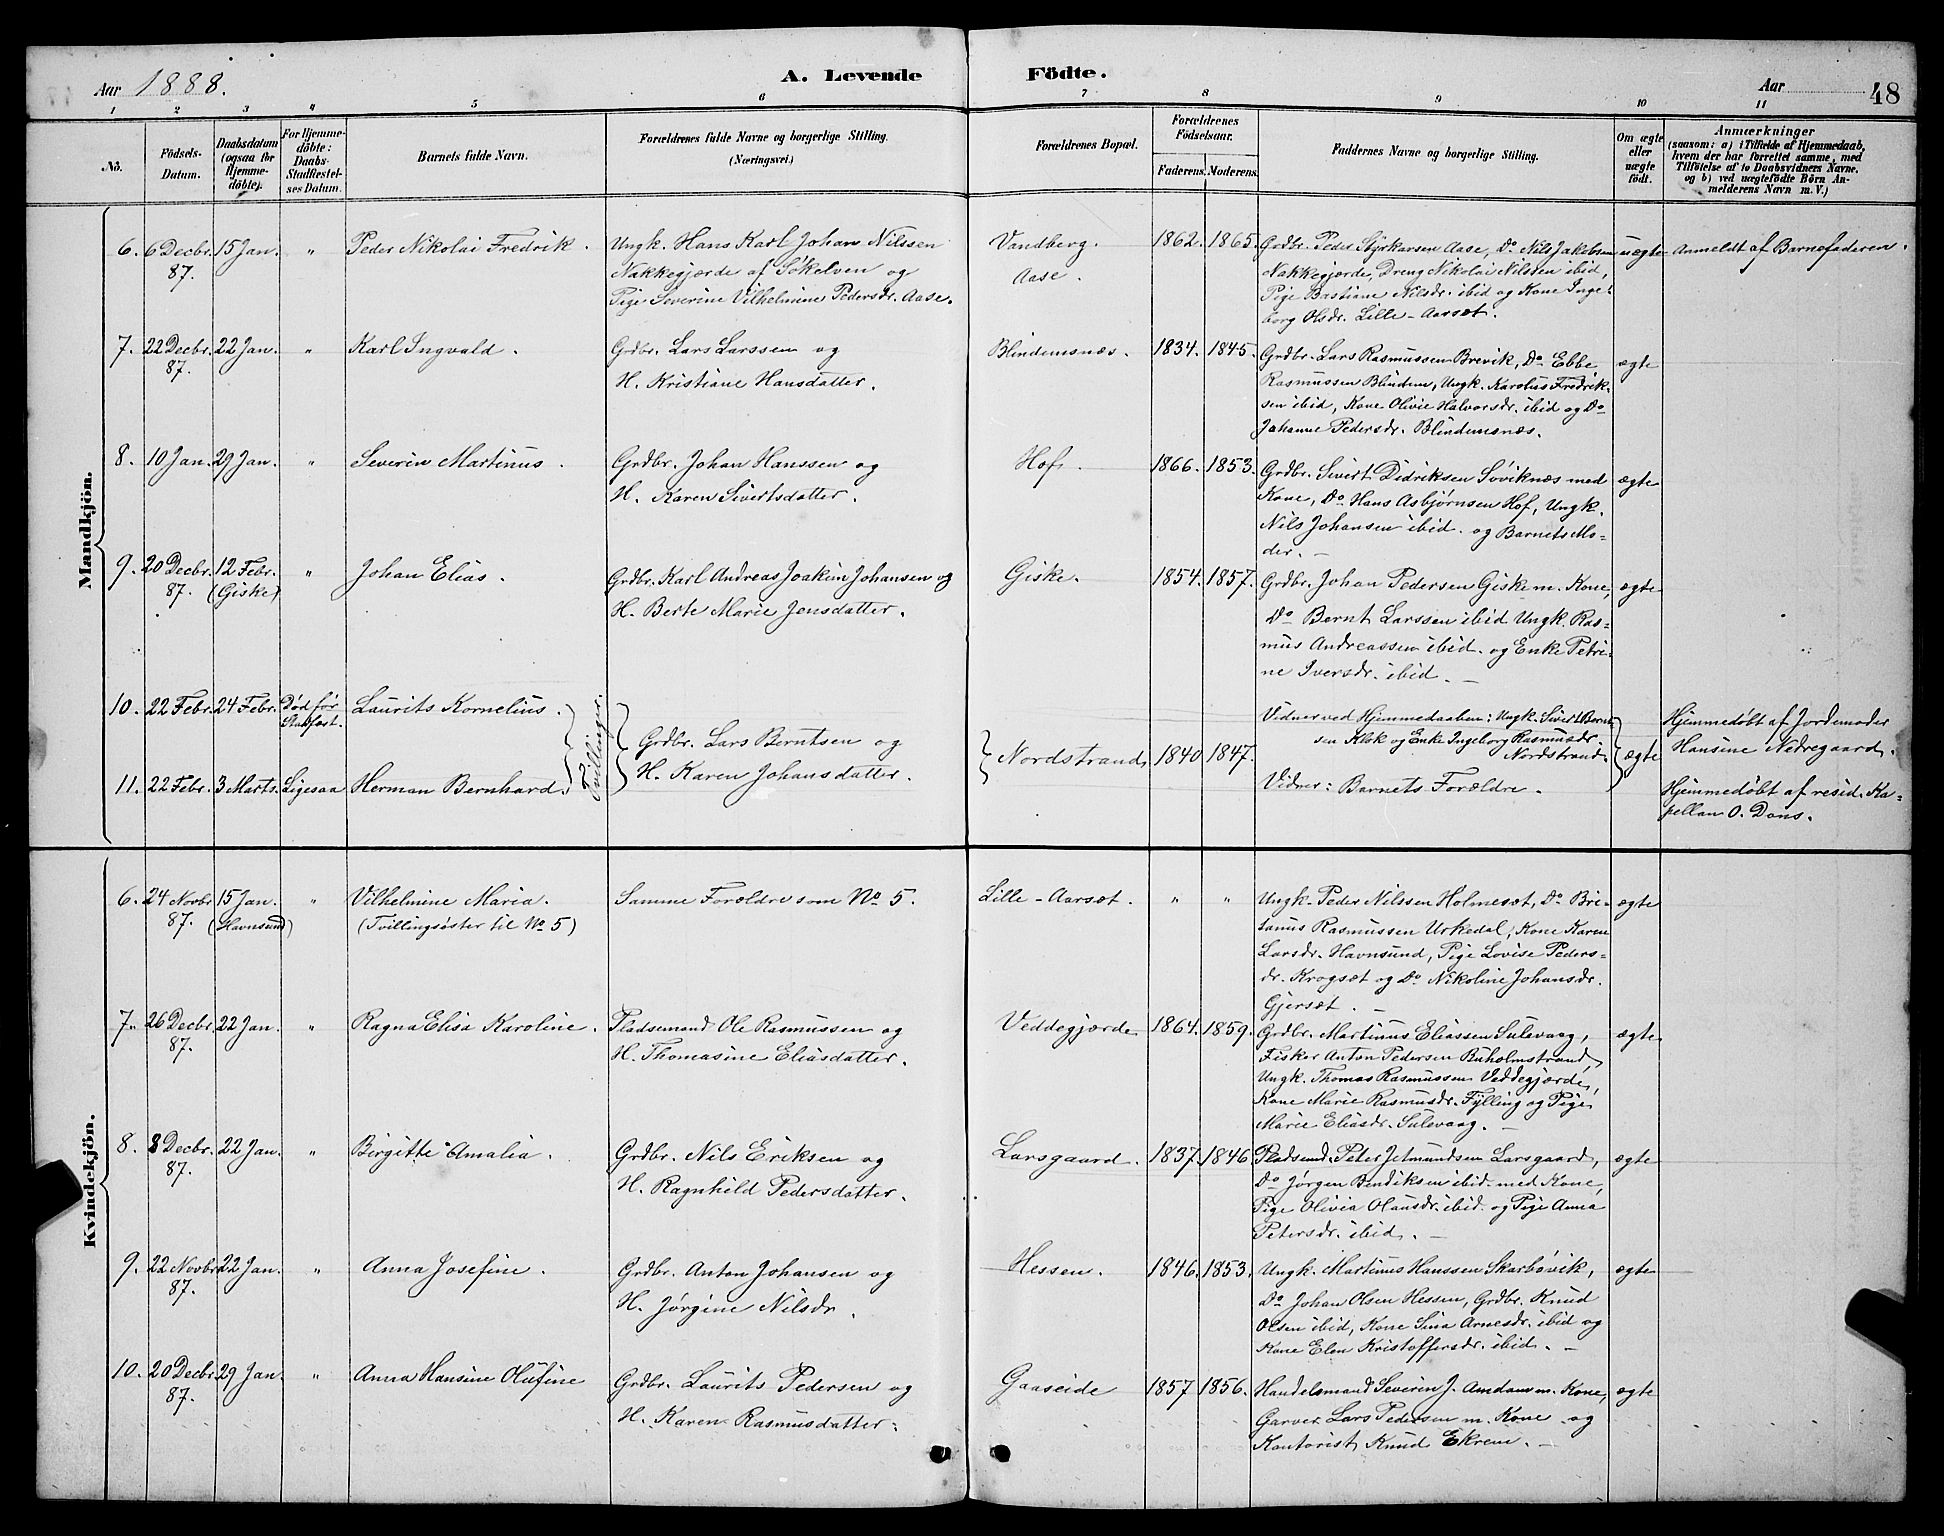 Aar 1888.
A. Levende Födte.
Aar
48
1 2 3 4 5 6 7 8 9 10 11
No.
Födsels-Datum.
Daabsdatum (ogsaa for Hjemmedöbte).
For Hjemmedöbte: Daabs-Stadfæstelses Datum.
Barnets fulde Navn.
Forældrenes fulde Navne og borgerlige Stilling. (Næringsvei.)
Forældrenes Bopæl.
Forældrenes Födselsaar.
Faderens. Moderens.
Faddernes Navne og borgerlige Stilling.
Om ægte eller uægte født.
Anmærkninger
(saasom: a) i Tilfælde af Hjemmedaab, hvem der har forrettet samme, med Tilföielse af to Daabsvidners Navne, og b) ved uægtefödte Börn Anmelderens Navn m. V.)
Mandkjön.
6. 6 Decbr. 15 Jan. " Peder Nikolai Fredrik. Ungk. Hans Karl Johan Nilssen Vandberg. 1862. 1865. Grdbr. Peder Styrkarsen Aase, Do Nils Jakobsen uægte Anmeldt af Barnefaderen.
87. Nakkegjærde af Søkelven og Aase. Nakkegjærde, Dreng Nikolai Nilssen ibid,
Pige Severine Vilhelmine Pedersdr. Aase. Pige Bastiane Nilsdr. ibid og Kone Inge-
borg Olsdr. Lille-Aarset.
7. 22 Decbr. 22 Jan. " Karl Ingvald. Grdbr. Lars Larssen og Blindemsnæs. 1834. 1845. Grdbr. Lars Rasmussen Brevik, Do Ebbe ægte
87. H. Kristiane Hansdatter. Rasmussen Blindem, Ungk. Karolus Fredrik-
sen ibid, Kone Olivie Halvorsdr. ibid og Do
Johanne Pedersdr. Blindemsnæs.
8. 10 Jan. 29 Jan. " Severin Martinus. Grdbr. Johan Hanssen og Hof. 1866. 1853. Grdbr. Sivert Didriksen Søviknæs med ægte
H. Karen Sivertsdatter. Kone, Do Hans Asbjørnsen Hof, Ungk.
Nils Johansen ibid. og Barnets Mo-
der. –
9. 20 Decbr. 12 Febr. " Johan Elias. Grdbr. Karl Andreas Joakim Johansen og Giske. 1854. 1857. Grdbr. Johan Pedersen Giske m. Kone, ægte
87. (Giske) H. Berte Marie Jonsdatter. Do Bernt Larssen ibid Ungk. Ras-
mus Andreassen ibid. og Enke Petri-
ne Iversdr. ibid. –
10. 22 Febr. 24 Febr. Død før Stadfæst. Laurits Kornelius. Tvillinger. Vidner ved Hjemmedaaben: Ungk. Sivert Bernt- Hjemmedøbt af Jordemoder
Grdbr. Lars Berntsen og Nordstrand 1840 1847. sen Klok og Enke Ingeborg Rasmusdr. Nordstrand. ægte Hansine Nedregaard.
11. 22 Febr. 3 Marts. Ligesaa Herman Bernhard. H. Karen Johansdatter. Vidner: Barnets Forældre. Hjemmedøbt af resid. Ka-
pellan O. Dons.
Kvindekjön.
6. 24 Novbr 15 Jan. " Vilhelmine Maria. Samme Forældre som No 5. Lille-Aarset. " " Ungk. Peder Nilssen Holmeset, Do Bri- ægte
87. (Havnsund) (Tvillingsøster til No 5) tanus Rasmussen Urkedal, Kone Karen
Larsdr. Havnsund, Pige Lovise Peders-
dr. Krogsæt og Do Nikoline Johansdr.
Gjersæt. –
7. 26 Decbr. 22 Jan. " Ragna Elisa Karoline. Pladsemand Ole Rasmussen og Veddegjærde 1864. 1859. Grdbr. Martinus Eliassen Sulevaag, ægte
87. H. Thomasine Eliasdatter. Fisker Anton Pedersen Buholmstrand,
Ungk. Thomas Rasmussen Veddegjærde,
Kone Marie Rasmusdr. Fylling og Pige
Marie Eliasdr. Sulevaag. –
8. 8 Decbr. 22 Jan. " Birgitte Amalia. Grdbr. Nils Eriksen og Larsgaard. 1837. 1846. Pladsmd. Peter Jetmundsen Larsgaard, ægte
87. H. Ragnhild Pedersdatter. Do Jørgen Bendiksen ibid. med Kone,
Pige Olivia Olausdr. ibid. og Pige Anna
Petersdr. ibid. –
9. 22 Novbr 22 Jan. " Anna Josefine. Grdbr. Anton Johansen og Hessen. 1846. 1853. Ungk. Martinus Hanssen Skarbøvik, ægte
87. H. Jørgine Nilsdr. Do Johan Olsen Hessen, Grdbr. Knud
Olsen ibid, Kone Sina Arnesdr. ibid og
Kone Elen Kristoffersdr. ibid. –
10. 20 Decbr. 29 Jan. " Anna Hansine Olufine Grdbr. Laurits Pedersen og Gaaseide 1857. 1856. Handelsmand Severin J. Amdam m. Kone, ægte
87. H. Karen Rasmusdatter. Garver Lars Pedersen m. Kone og
Kontorist Knud Ekrem. –